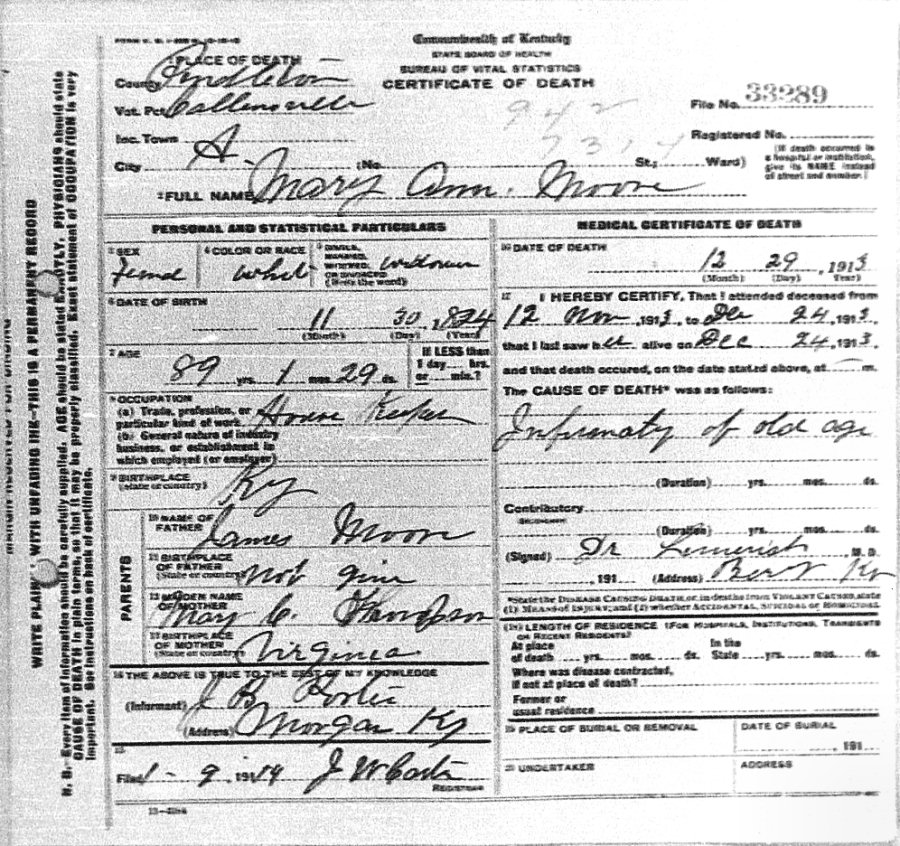 Commonwealth of Kentucky
STATE BOARD OF HEALTH
BUREAU OF VITAL STATISTICS
CERTIFICATE OF DEATH
PLACE OF DEATH
County Pendleton
Vot. Pct Callensville
Inc. Town A.
City (No. St.; Ward)
942
7314
File No. 33289
Registered No.
(If death occurred in a hospital or institution, give its NAME instead of street and number.)
2 FULL NAME Mary Ann. Moore
PERSONAL AND STATISTICAL PARTICULARS
3 SEX Femal
4 COLOR OR RACE White
5 SINGLE, MARRIED, WIDOWED OR DIVORCED (Write the word) Widower
6 DATE OF BIRTH 11 30, 1824
(Month) (Day) (Year)
7 AGE 89 yrs. 1 mos. 29 ds.
If LESS than 1 day hrs. or min.?
8 OCCUPATION
(a) Trade, profession, or particular kind of work House Keeper
(b) General nature of industry
business, or establishment in
which employed (or employer)
9 BIRTHPLACE
(State or country) Ky
PARENTS
10 NAME OF FATHER James Moore
11 BIRTHPLACE OF FATHER (State or country) Not give
12 MAIDEN NAME OF MOTHER Mary C. Thompson
13 BIRTHPLACE OF MOTHER (State or country) Virginia
14 THE ABOVE IS TRUE TO THE BEST OF MY KNOWLEDGE
(Informant) J B Porter
(Address) Morgan Ky
15
Filed 1-9, 1914 J W Carter
REGISTRAR
MEDICAL CERTIFICATE OF DEATH
16 DATE OF DEATH
12 29, 1913
(Month) (Day) (Year)
17 I HEREBY CERTIFY, That I attended deceased from
12 Nov, 1913, to Dec 24, 1913,
that I last saw her alive on Dec 24, 1913,
and that death occured, on the date stated above, at m.
The CAUSE OF DEATH* was as follows:
Infirmaty of old age
(Duration) yrs. mos. ds.
Contributory
SECONDARY
(Duration) yrs. mos. ds.
(Signed) Dr M. D.
, 191 (Address) Ky
*State the DISEASE CAUSING DEATH, or in deaths from VIOLENT CAUSES, state
(1) MEANS OF INJURY; and (2) whether ACCIDENTAL, SUICIDAL or HOMICIDAL
18 LENGTH OF RESIDENCE (FOR HOSPITALS, INSTITUTIONS, TRANSIENTS
OR RECENT RESIDENTS)
At place of death yrs. mos. ds. In the State yrs. mos. ds.
Where was disease contracted,
if not at place of death?
Former or
usual residence
19 PLACE OF BURIAL OR REMOVAL
DATE OF BURIAL
, 191
20 UNDERTAKER
ADDRESS
WRITE PLAINLY WITH UNFADING INK—THIS IS A PERMANENT RECORD
N. B.—Every item of information should be carefully supplied. AGE should be stated EXACTLY. PHYSICIANS should state
CAUSE OF DEATH in plain terms, so that it may be properly classified. Exact statement of OCCUPATION is very
important. See instructions on back of certificate.